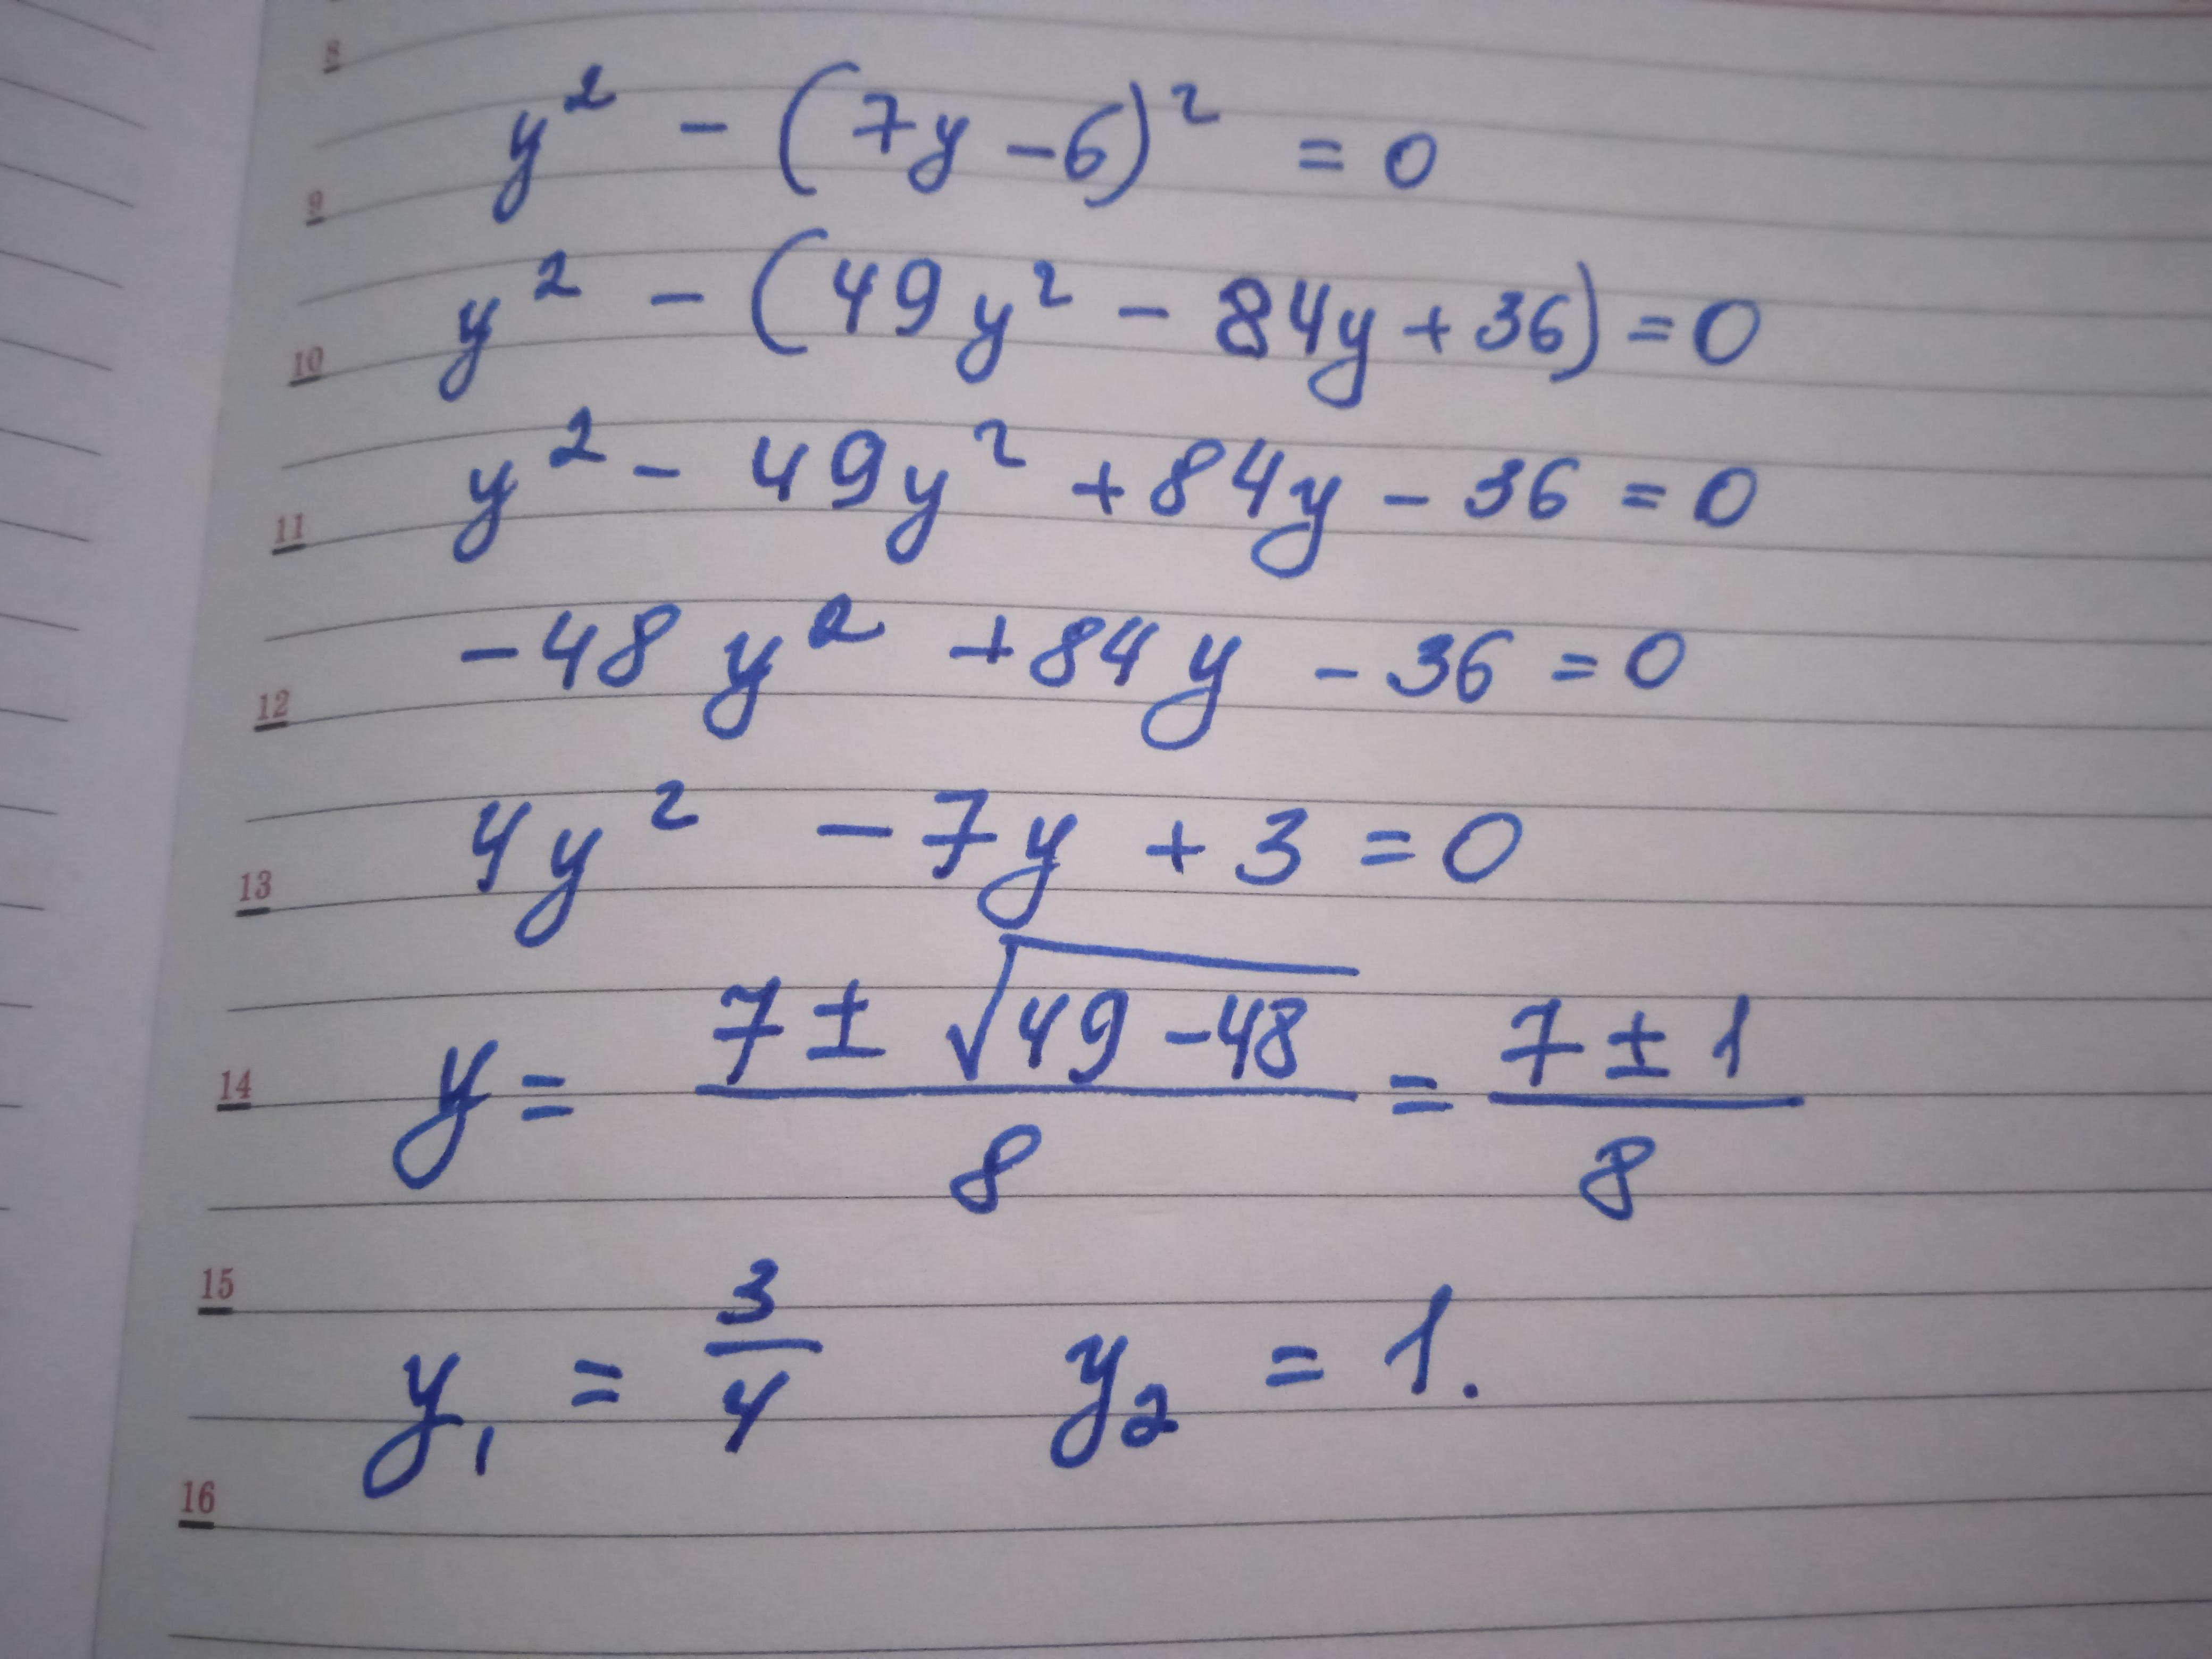 8
y² - (7y - 6)² = 0
9
y² - (49y² - 84y + 36) = 0
10
y² - 49y² + 84y - 36 = 0
11
-48y² + 84y - 36 = 0
12
4y² - 7y + 3 = 0
13
y = (7 ± √(49 - 48))/8 = (7 ± 1)/8
14
15
y₁ = 3/4 y₂ = 1.
16